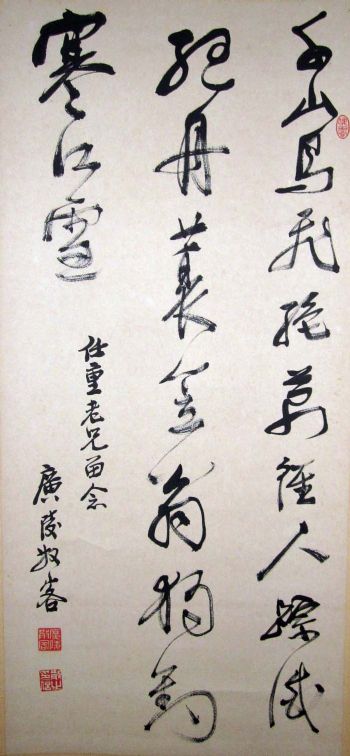 千山鳥飛絶萬徑人蹤滅
孤舟蓑笠翁獨釣
寒江雪
仕重老兄留念
廣陵散客